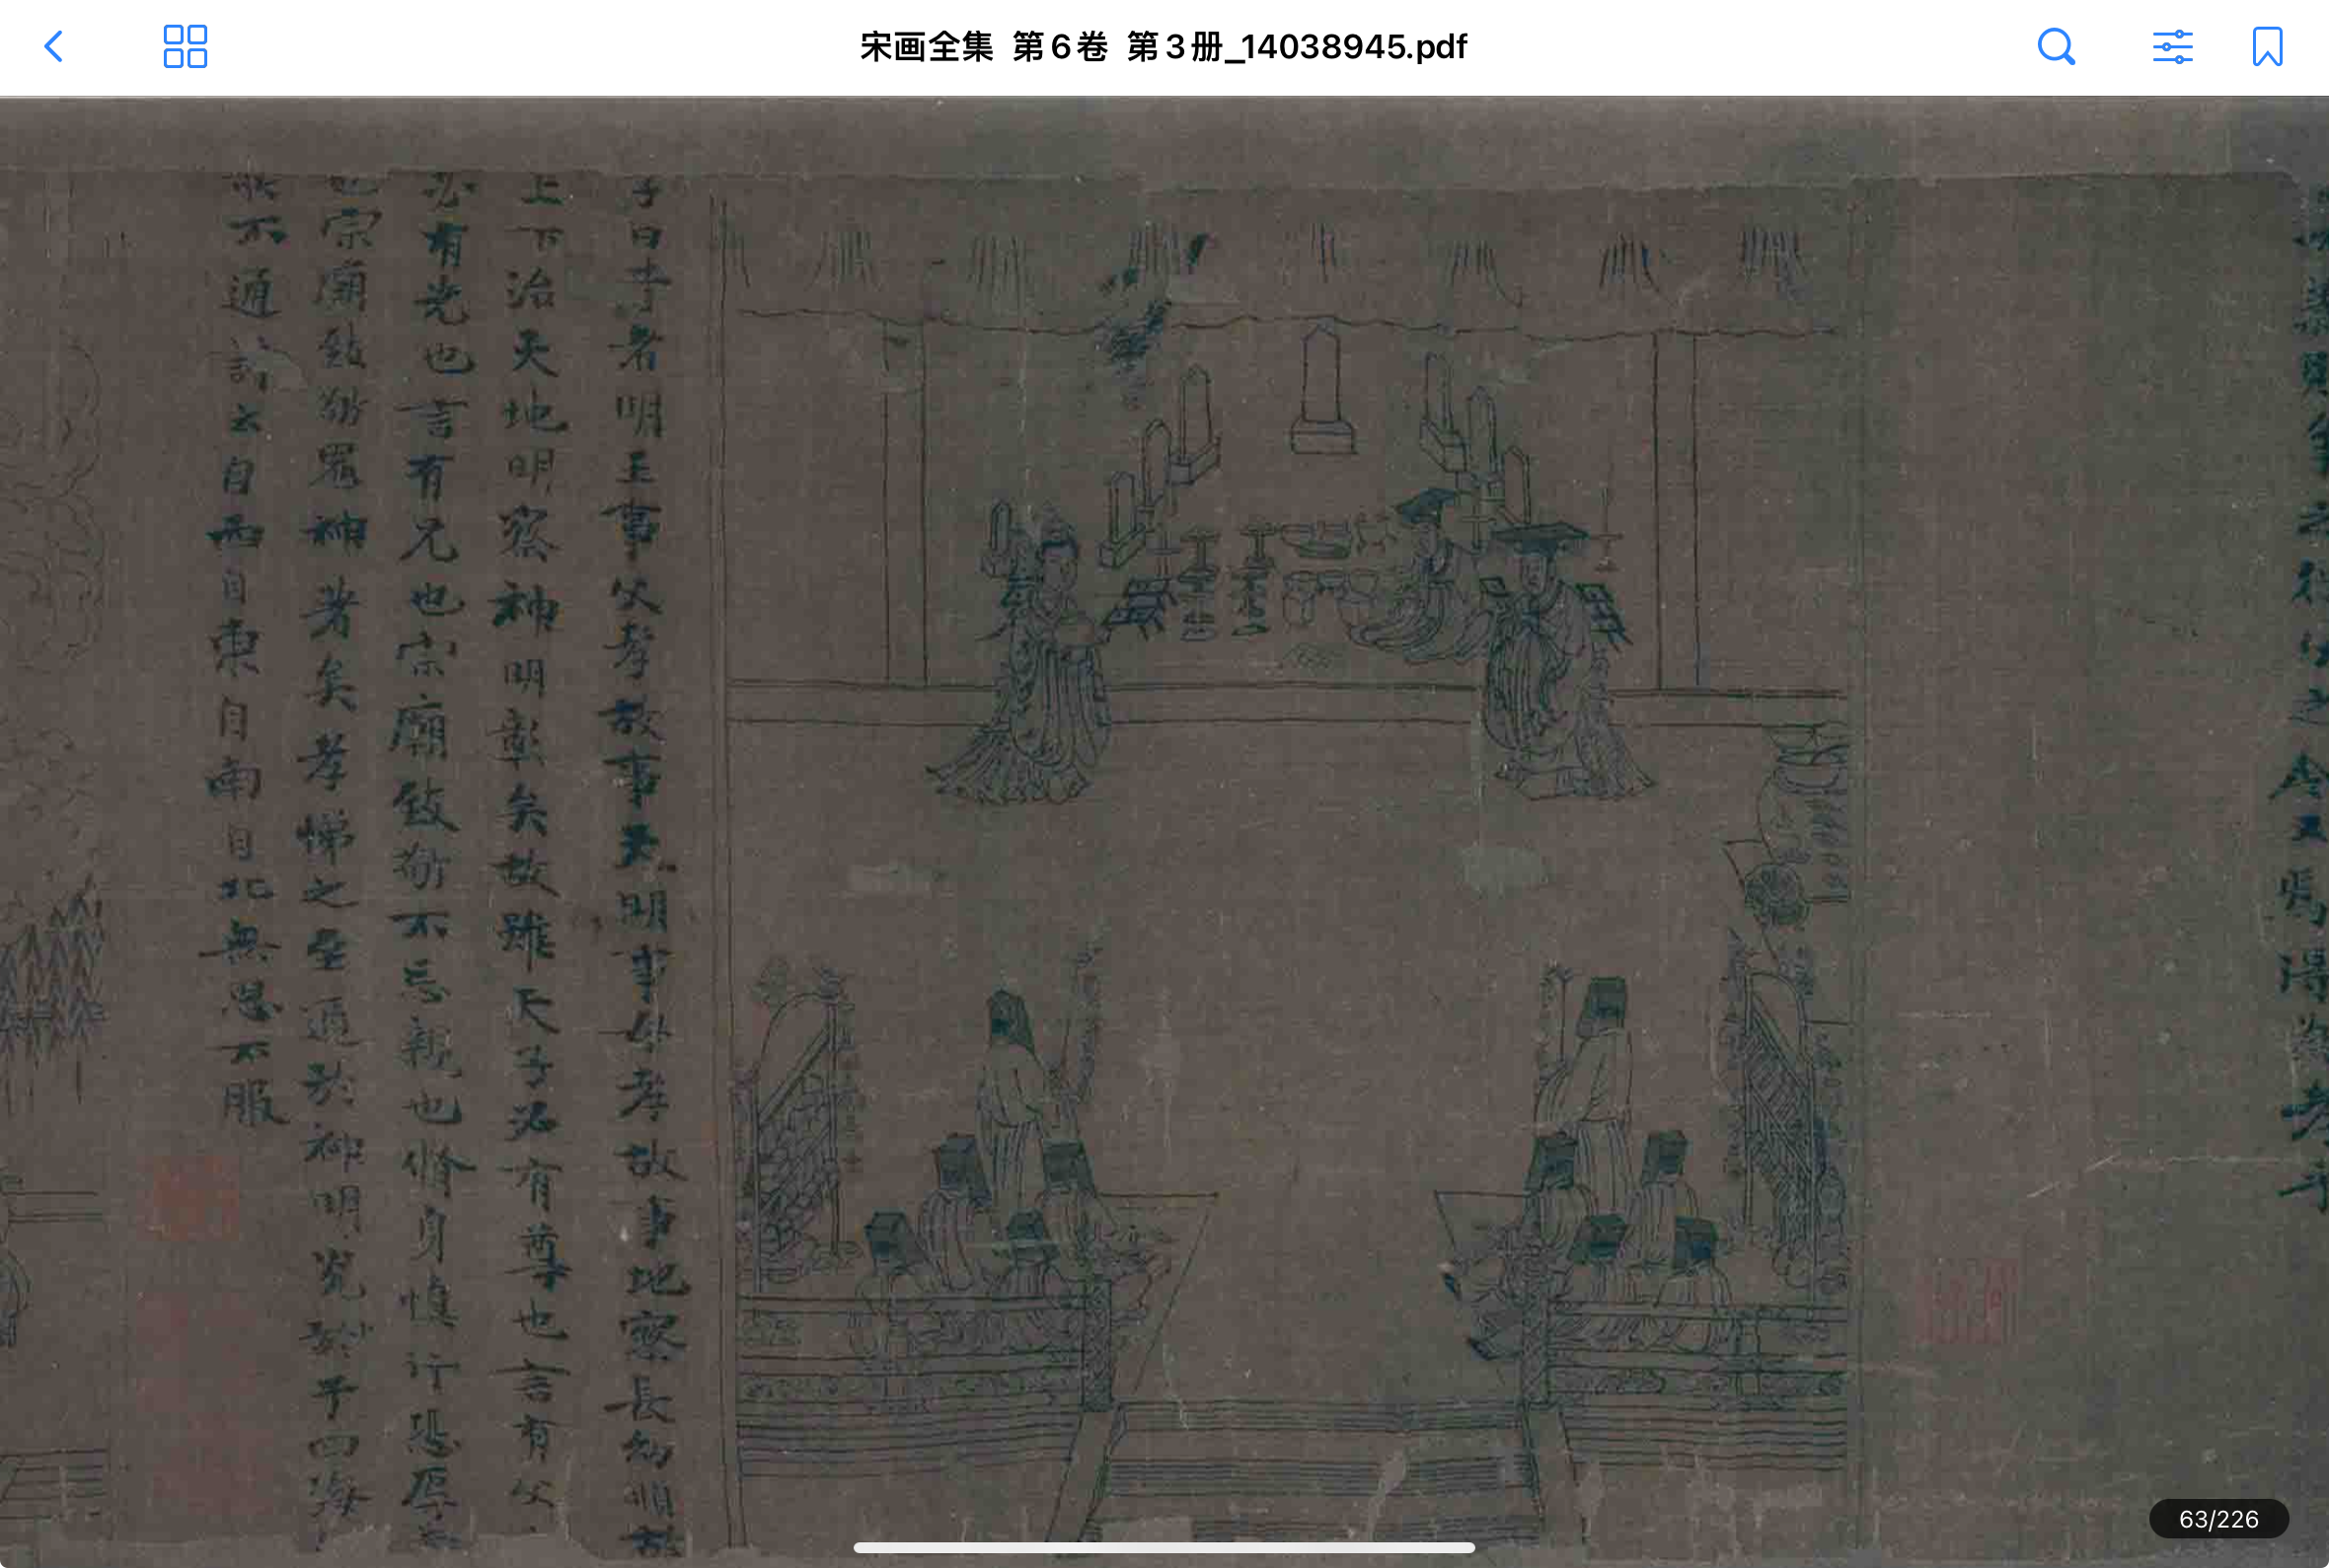 宋画全集 第6卷 第3册_14038945.pdf
子曰孝者明王事父孝故事天明事母孝故事地察長幼順故
上下治天地明察神明彰矣故雖天子必有尊也言有父
必有先也言有兄也宗廟致敬不忘親也脩身慎行恐辱先
也宗廟致敬鬼神著矣孝悌之至通於神明光於于四海
所不通詩云自西自東自南自北無思不服
63/226